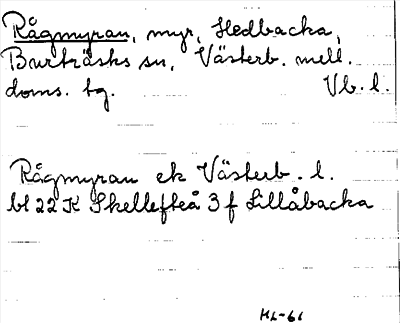 Rågmyran, myr, Hedbacka,
Burträsks sn, Västerb. mell.
doms. tg. Vb. l.
Rågmyran ek Västerb. l.
bl 22 K Skellefteå 3 f Lillåbacka
HL-61